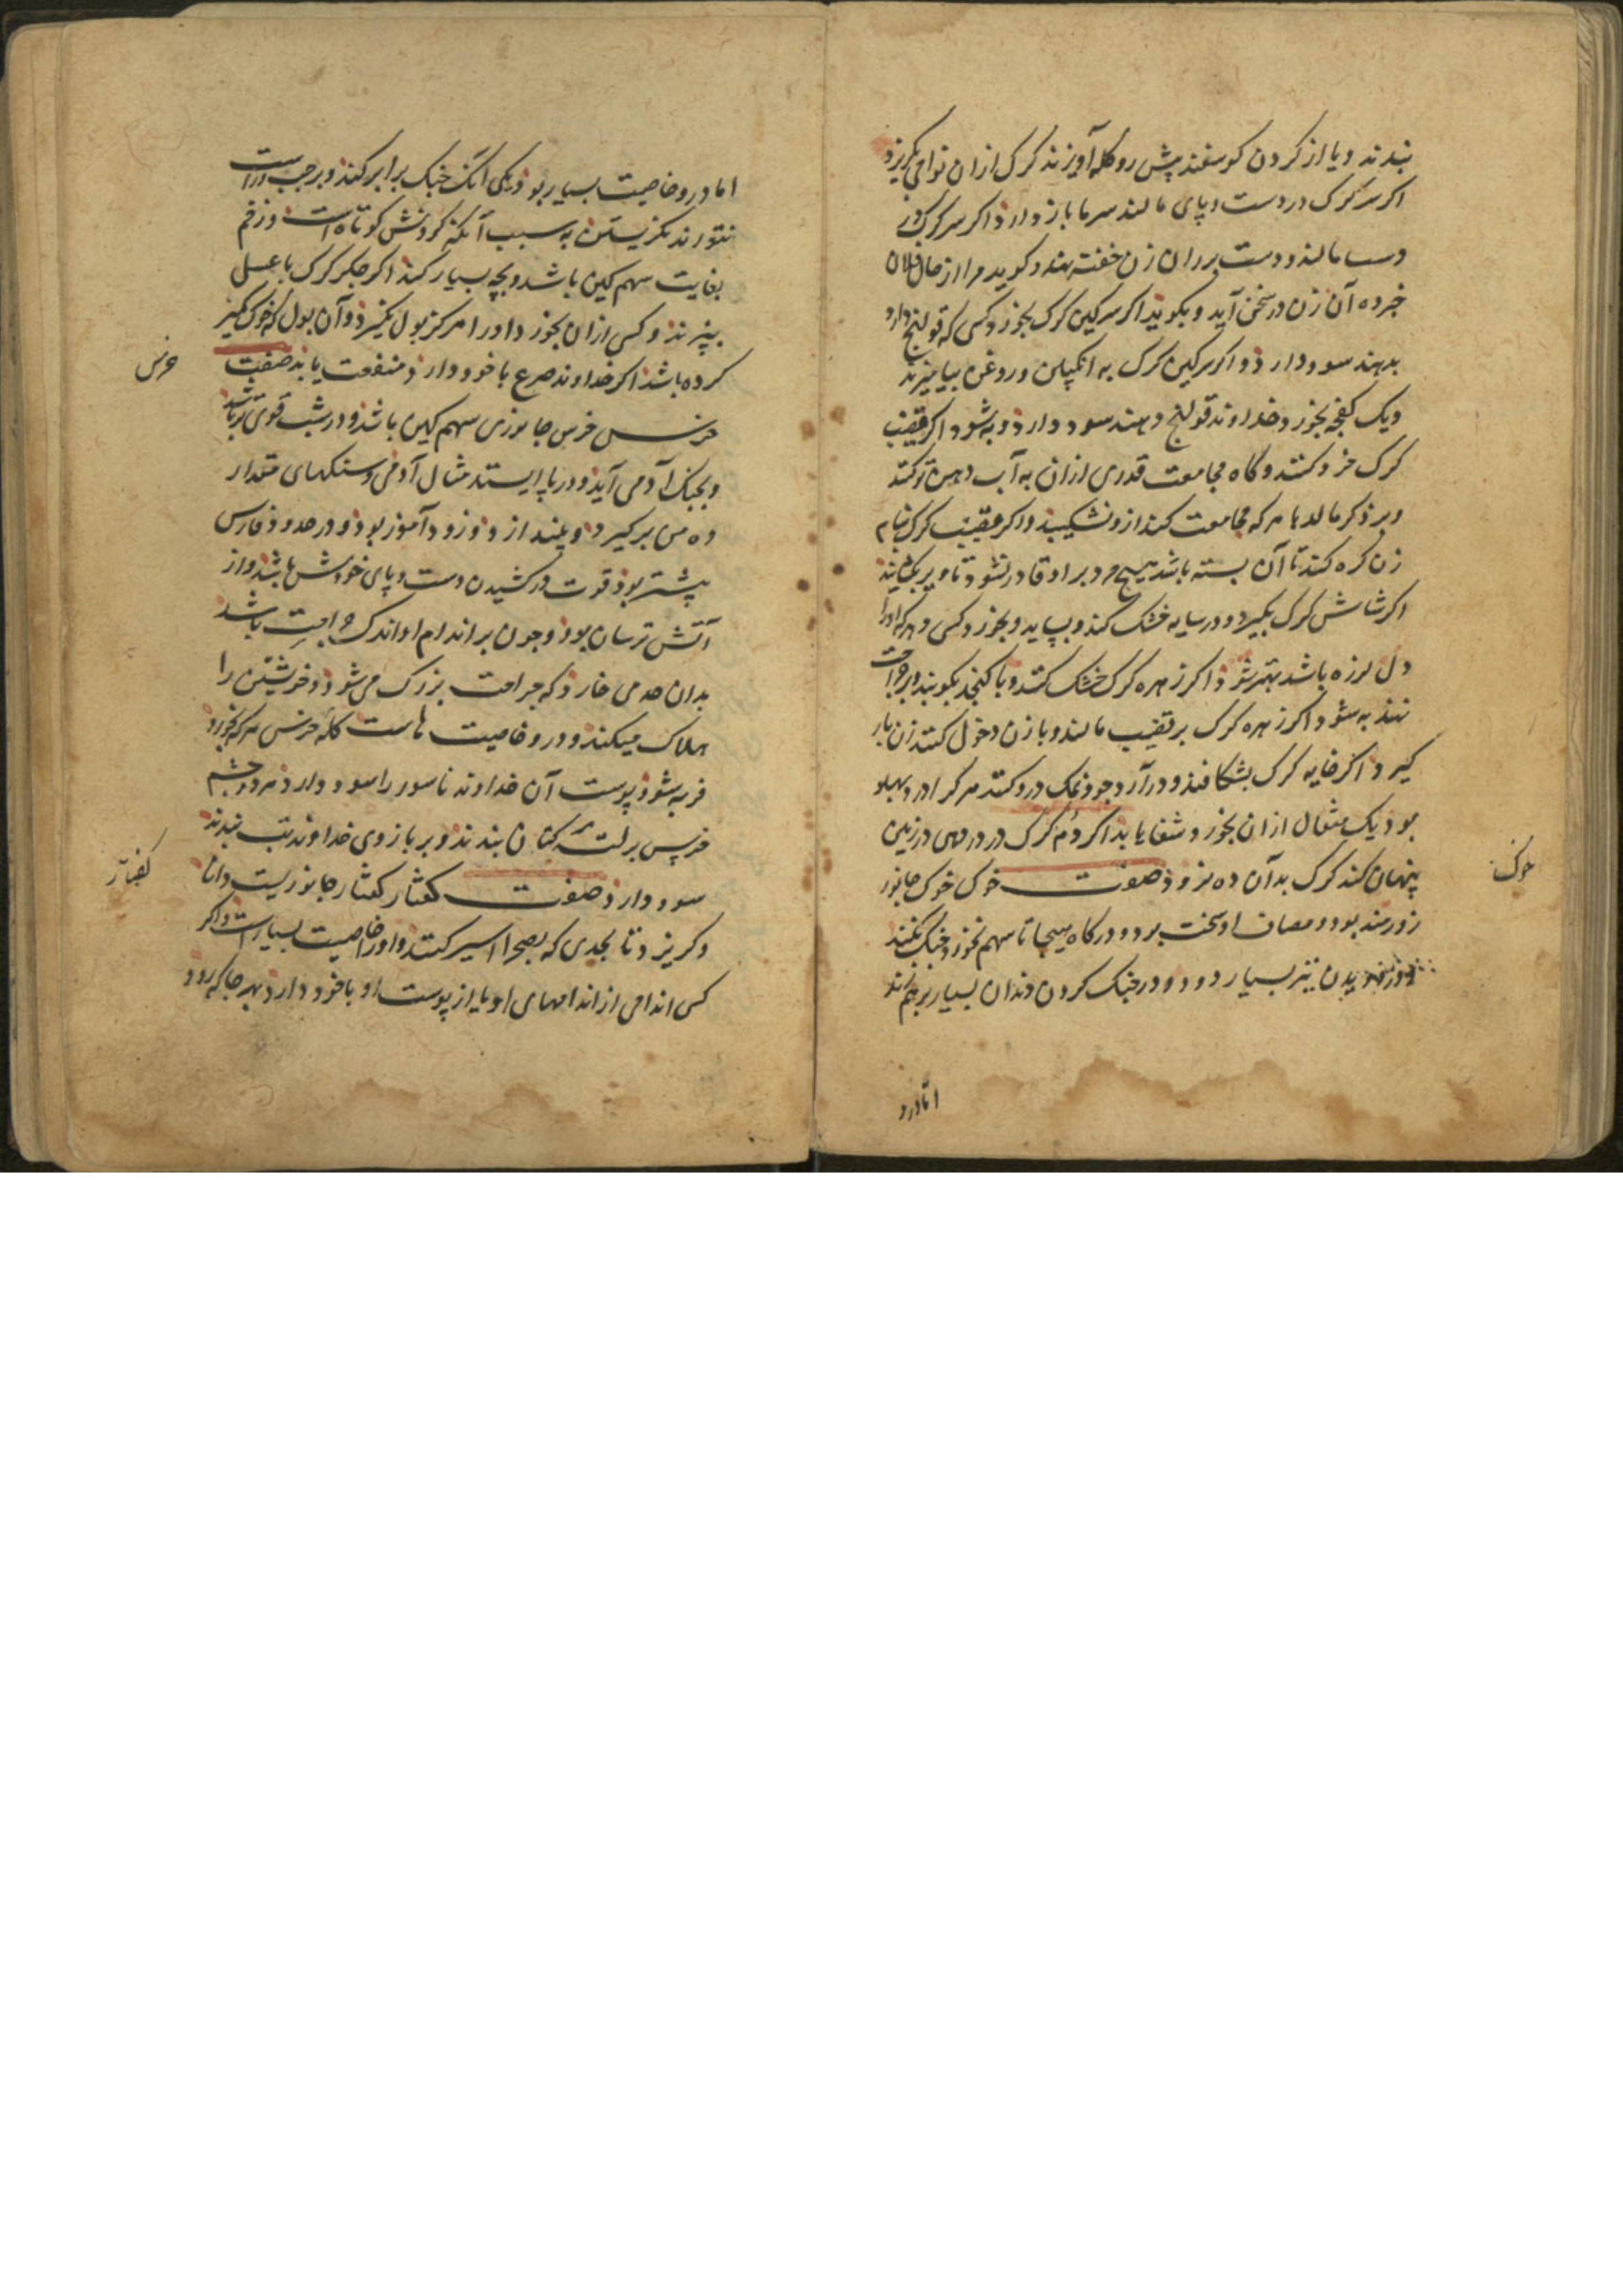 بندند و یا از کردن کوسفند پیش رو کله آویزند کرک ازان نواحی بکریزد
اکر سر کرک در دست و پای مالند سرما باز دارد اکر سر کرک
دست مالند و دست بر ران زن خفته نهند و کوید مرا از حال فلان
خبر ده آن زن در سخن آید و بکوید اکر سرکین کرک بخورد کسی که قولنج دارد
بدهند سود دارد و اکر سرکین کرک به انکبین و روغن بیامیزند
و یک کفجه بخورد خداوند قولنج دهند سود دارد و به شود اکر قضیب
کرک خرد کنند و کاه مجامعت قدری ازان به آب دهن تر کنند
و بر ذکر مالد با هر که مجامعت کند ازو نشکیبد و اکر قضیب کرک بنام
زن کره کنند تا آن بسته باشد هیچ مرد بر او قادر نشود تا
اکر شاش کرک بکیرد و در سایه خشک کند و بساید و بخورد کسی دهد که او را
دل لرزه باشد بهتر شود اکر زهره کرک خشک کنند و با کنجد بکوبند و بر جراحت
نهند به شود اکر زهره کرک بر قضیب مالند و با زن دخول کنند زن بار
کیرد اکر خایه کرک بشکافند و در آرد جو و نمک درو کنند هر کرا درد پهلو
بود یک مثقال ازان بخورد شفا یابد اکر دم کرک در در دهی در زمین
پنهان کند کرک بدآن ده نرود صفت خوک خوک جانور
زورمند بود و مصاف او سخت بود و در کاه هیجا تا سهم نخورد جنک نکند
نیز بسیار دود و در جنک کردن دندان بسیار بر هم زند
خوک
اما درو
اما درو خاصیت بسیار بود یکی آنک جنک برابر کند و بر چپ و راست
نتواند نکریستن به سبب آنکه کردنش کوتاه است و زخم
بغایت سهم کین باشد و بچه بسیار کند اکر جکر کرک با عسل
بپزند و کسی ازان بخورد او را هرکز بول نکیرد و آن بول که خوک
کرده باشد اکر خداوند صرع با خود دارد منفعت یابد صفت
خرس خرس جانوری سهم کین باشد و در شب قوی تر باشد
و بجنک آدمی آید و در پا ایستد مثال آدمی و سنکهای مقدار
ده من بر کیرد و بیندازد و زود آموز بود و در حدود فارس
بیشتر بود قوت در کشیدن دست و پای خودش باشد و از
آتش ترسان بود و چون بر اندام او اندک جراحت باشد
بدان حد می خارد که جراحت بزرک می شود و خویشتن را
هلاک میکند و درو خاصیت هاست کله خرس هر که بخورد
فربه شود پوست آن خداوند ناسور را سود دارد هر دو چشم
خرس بر لته کتان بندند و بر بازوی خداوند تب بندند
سود دارد صفت کفتار کفتار جانوریست دانا
و کریزد تا بحدی که بصحرا اسیر کنند و او را خاصیت بسیار است و اکر
کسی اندامی از اندامهای او یا از پوست او با خود دارد بهر جا که رود
خرس
کفتار